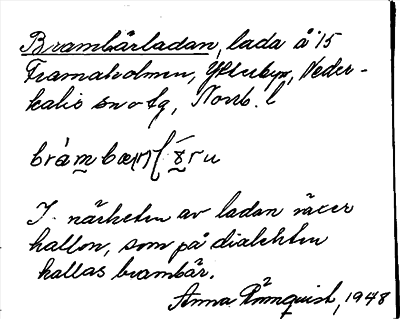 Brambärladan, lada å 15
Framaholmen, Ytterbyn, Neder-
kalix sn o tg, Norrb. l
I närheten av ladan växer
hallon, som på dialekten
kallas brambär.
Anna Rönnquist, 1948